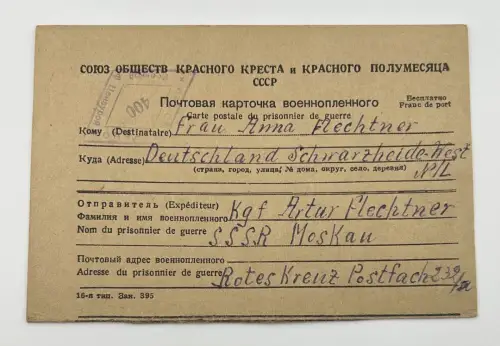 СОЮЗ ОБЩЕСТВ КРАСНОГО КРЕСТА и КРАСНОГО ПОЛУМЕСЯЦА
СССР
Почтовая карточка военнопленного
Carte postale du prisonnier de guerre
Бесплатно
Franc de port
Кому (Destinataire) Frau Anna Flechtner
Куда (Adresse) Deutschland Schwarzheide-West
(страна, город, улица, № дома, округ, село, деревня) N/L
Отправитель (Expéditeur)
Фамилия и имя военнопленного Kgf Artur Flechtner
Nom du prisonnier de guerre SSSR Moskau
Почтовый адрес военнопленного
Adresse du prisonnier de guerre Rotes Kreuz Postfach 232/
16-я тип. Зак. 395